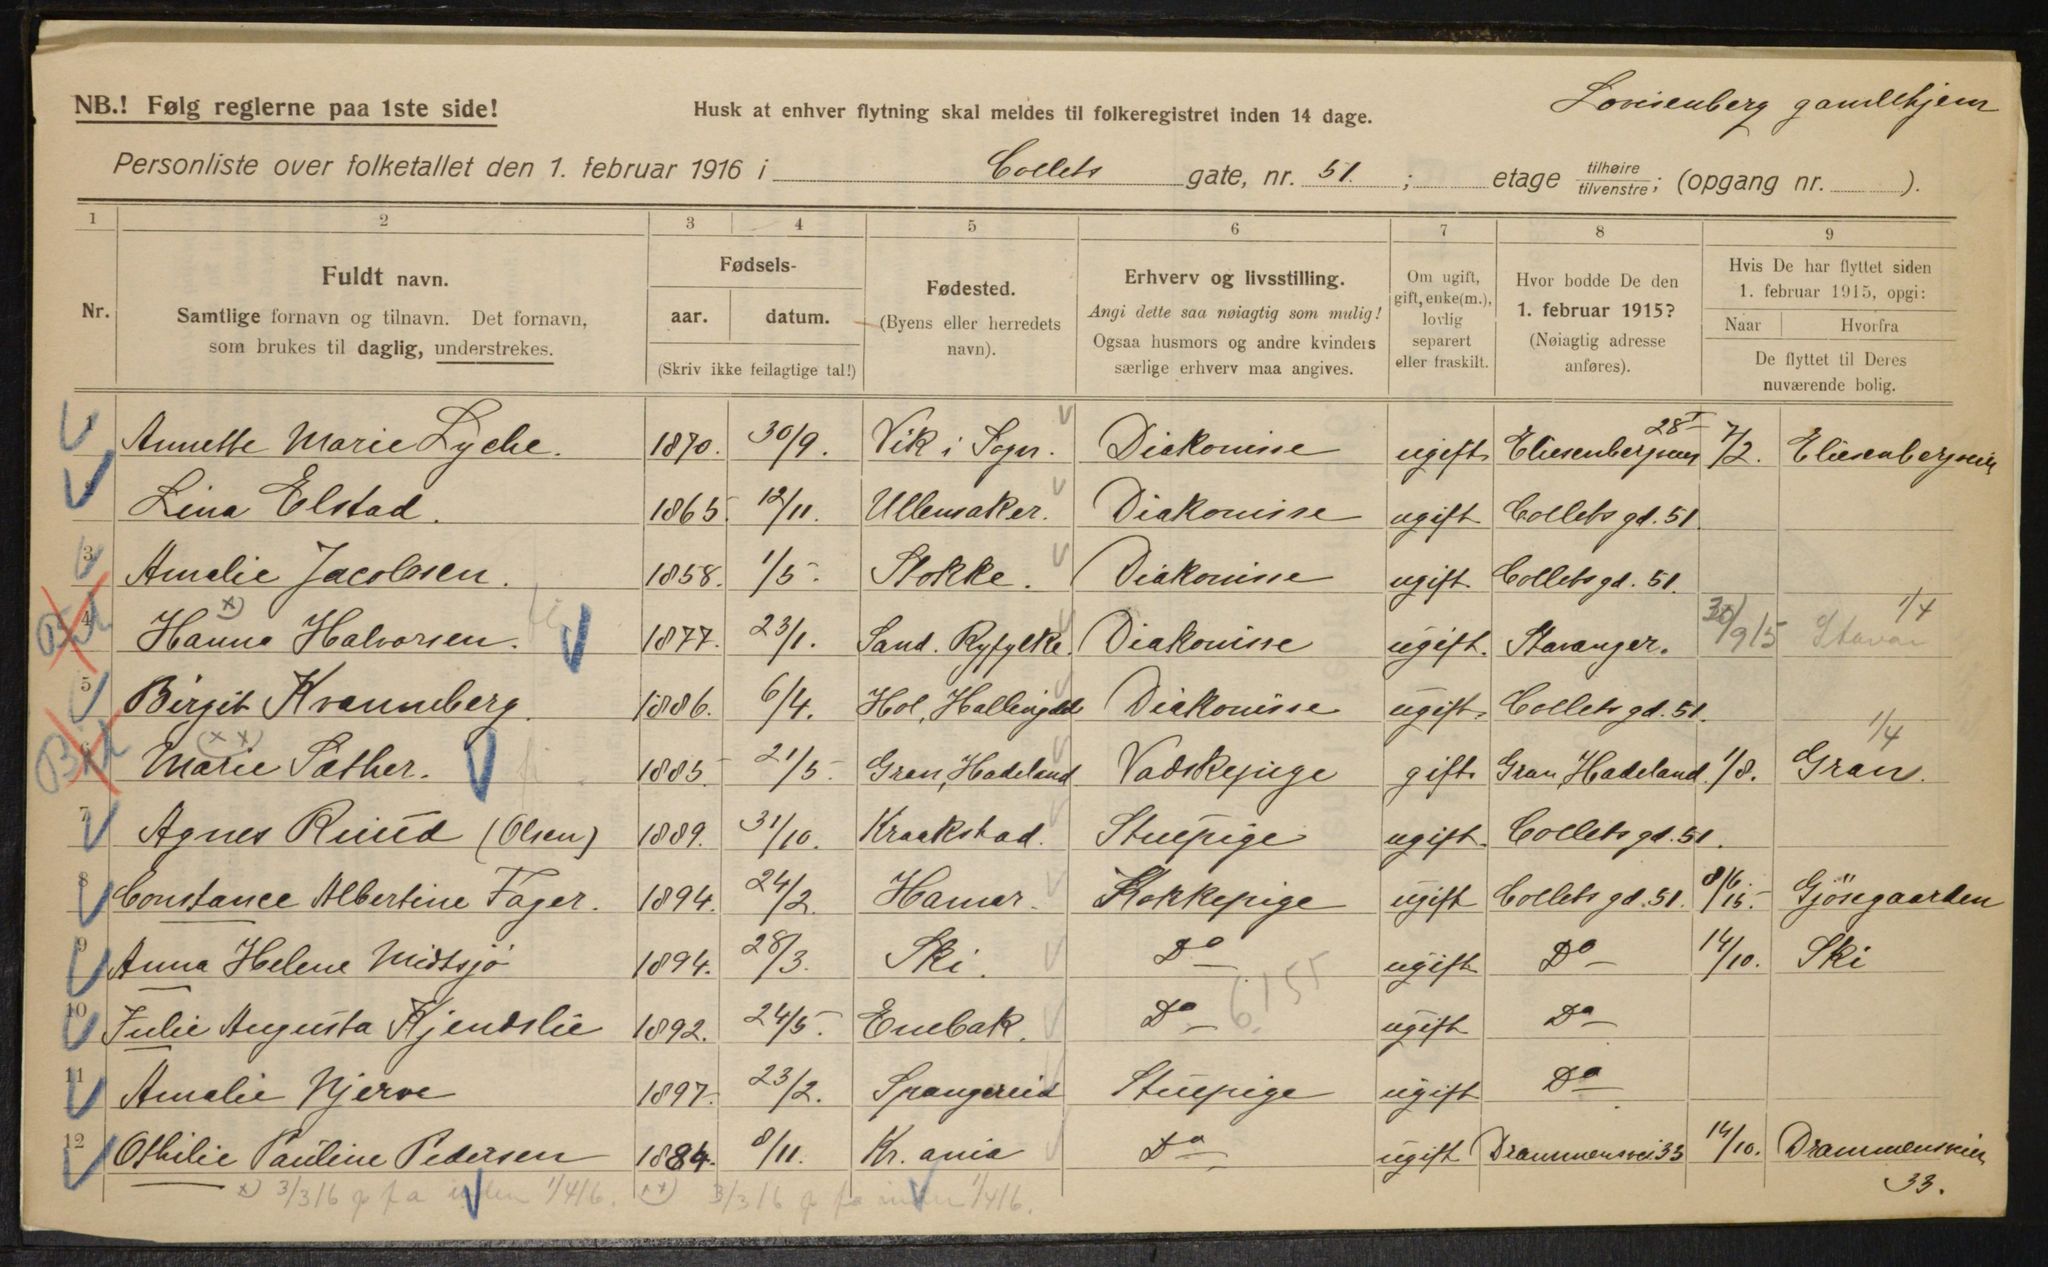 Lovisenberg gamlehjem
NB.! Følg reglerne paa 1ste side!
Husk at enhver flytning skal meldes til folkeregistret inden 14 dage.
Personliste over folketallet den 1. februar 1916 i Collets gate, nr. 51. ; etage tilhøire tilvenstre; (opgang nr. ).
1 2 3 4 5 6 7 8 9
Nr.
Fuldt navn.
Samtlige fornavn og tilnavn. Det fornavn,
som brukes til daglig, understrekes.
Fødsels-
aar. datum.
(Skriv ikke feilagtige tal!)
Fødested.
(Byens eller herredets
navn).
Erhverv og livsstilling.
Angi dette saa nøiagtig som mulig!
Ogsaa husmors og andre kvinders
særlige erhverv maa angives.
Om ugift,
gift, enke(m.),
lovlig
separert
eller fraskilt.
Hvor bodde De den
1. februar 1915?
(Nøiagtig adresse
anføres).
Hvis De har flyttet siden
1. februar 1915, opgi:
Naar Hvorfra
De flyttet til Deres
nuværende bolig.
1 Annette Marie Lyche. 1870. 30/9. Vik i Sogn. Diakonisse ugift Eliesenbergvn 28 I 7/2. Eliesenbergveien
Lina Elstad. 1865. 12/11. Ullensaker. Diakonisse ugift Collets gd. 51.
3 Amalie Jacobsen. 1858. 1/5. Stokke. Diakonisse ugift. Collets gd. 51.
4 Hanna Halvorsen. x) 1877. 23/1. Sand. Ryfylke. Diakonisse ugift. Stavanger. 30/9 15 Stavan 1/4
5 Birgit Kvanneberg. 1886. 6/4. Hol, Hallingdal Diakonisse ugift. Collets gd. 51.
6 Marie Sæther. (xx) 1885 21/5. Gran, Hadeland Vaskepige gift Gran, Hadeland. 1/8. Gran. 1/4
7 Agnes Ruud (Olsen) 1889. 31/10. Kraakstad. Stuepige ugift. Collets gd. 51.
8 Constance Albertine Fager. 1894. 24/2. Hamar. Kokkepige ugift Collets gd. 51. 8/6 15. Gjøsegaarden
9 Anna Helene Midtsjø 1894. 28/3. Ski. Do ugift Do 14/10. Ski
6155
10 Julie Augusta Kjendslie 1892. 24/5. Enebak. Do ugift Do
11 Amalie Njerve 1897. 23/2. Spangereid Stuepige ugift Do
12 Othilie Pauline Pedersen 1884. 8/11. Kr.ania Do ugift Drammensvei 33 14/10. Drammensveien
33.
x) 3/3 16 fra inden 1/4 16. xx) 3/3 16 fra inden 1/4 16.